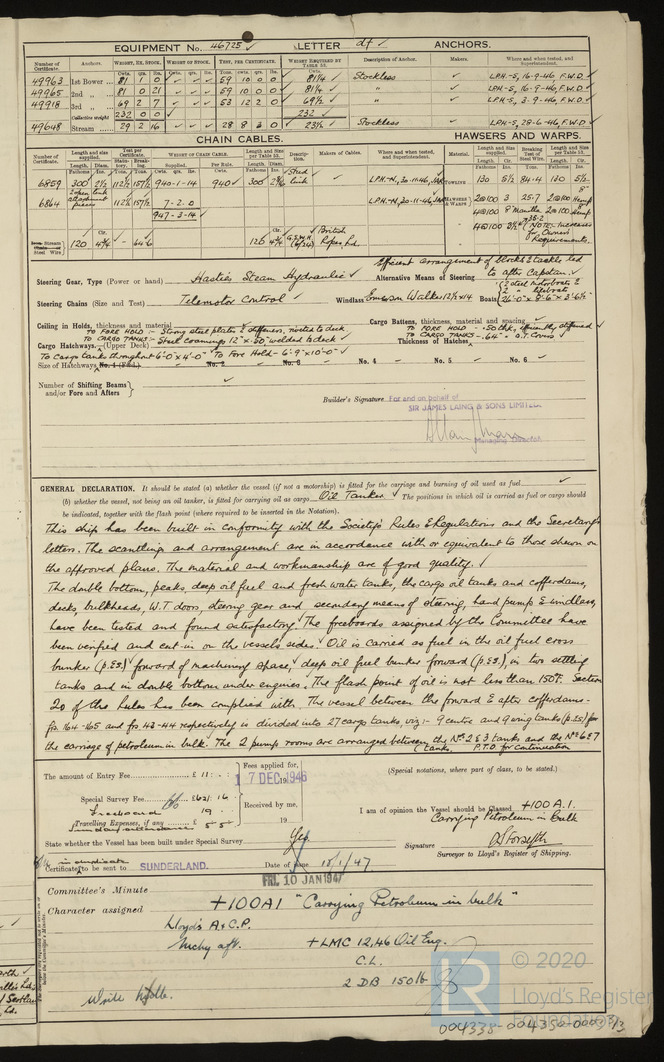 EQUIPMENT No. 46725 ✓ LETTER d† ✓ ANCHORS.
Number of Certificate. Anchors. WEIGHT, EX. STOCK. WEIGHT OF STOCK. TEST, PER CERTIFICATE. WEIGHT REQUIRED BY TABLE 53. Description of Anchor. Makers. Where and when tested, and Superintendent.
Cwts. qrs. lb. Cwts. qrs. lb. Tons. cwts. qrs. lb. Cwts.
49963 1st Bower ... 81 1 0 ✓ ✓ ✓ 59 10 0 0 ✓ 81¼ ✓ Stockless ✓ LPH-S, 16-9-46, F.W.D ✓
49965 2nd „ ... 81 0 21 ✓ ✓ ✓ 59 10 0 0 ✓ 81¼ ✓ " ✓ LPH-S, 16-9-46, F.W.D ✓
49918 3rd „ ... 69 2 7 ✓ ✓ ✓ 53 12 2 0 ✓ 69½ ✓ " ✓ LPH-S, 3-9-46, F.W.D ✓
Collective weight 232 0 0 ✓ 232 ✓
49648 Stream ... 29 2 16 ✓ ✓ ✓ 28 8 3 0 ✓ Stockless ✓ LPH-S, 28-6-46, F.W.D ✓
CHAIN CABLES. HAWSERS AND WARPS.
Number of Certificate. Length and size supplied. Test per Certificate. WEIGHT OF CHAIN CABLE. Length and Size per Table 53. Description. Makers of Cables. Where and when tested, and Superintendent. Material. Length and Size supplied. Breaking Test of Steel Wire. Length and Size per Table 53.
Length. Diam. Statutory. Breaking. Supplied. Per Rule. Length. Diam. Length. Cir. Length. Cir.
6859 300 2½ 112½ 157½ 940-1-14 940 ✓ 300 Stud link ✓ LPH-N, 30-11-46 TOWLINE 130 5½ 84·4 130 5½
6864 attachment pieces 112½ 157½ 7-2-0 LPH-N, 30-11-46 HAWSERS & WARPS 2@100 3 25·7 2@100 8" Hemp
947-3-14 ✓ 4@100 8" Manilla 2@100 Hemp
Stream Steel Wire 120 4¾ ✓ - 64·6 120 4¾ British Ropes Ld 4@100 (NOTE:- Increases for Owners Requirements.
Steering Gear, Type (Power or hand) Hasties Steam Hydraulic ✓ Alternative Means of Steering Efficient arrangement of blocks & tackles led to after Capstan. ✓
Steering Chains (Size and Test) Telemotor Control ✓ Windlass Emerson Walker 12½x14 Boats (2 steel motorboats & 2 " lifeboats 26'·0" x 8'·6" x 3'·6½"
Ceiling in Holds, thickness and material TO FORE HOLD :- Strong steel plates & stiffeners, riveted to deck Cargo Battens, thickness, material and spacing ✓
Cargo Hatchways.—(Upper Deck) TO CARGO TANKS :- Steel coamings 12"x·50" welded to deck ✓ Thickness of Hatches TO FORE HOLD - ·50 thk, efficiently stiffened ✓ TO CARGO TANKS - ·64" - O.T. Covers ✓
Size of Hatchways No. 1 (Fwd.) To Cargo tanks throughout 6'·0"x4'·0" To Fore Hold - 6'·9"x10'·0" ✓ No. 2 No. 3 No. 4 No. 5 No. 6 ✓
Number of Shifting Beams and/or Fore and Afters } ✓
Builder's Signature For and on behalf of
SIR JAMES LAING & SONS LIMITED.
Managing Director
GENERAL DECLARATION. It should be stated (a) whether the vessel (if not a motorship) is fitted for the carriage and burning of oil used as fuel ✓
(b) whether the vessel, not being an oil tanker, is fitted for carrying oil as cargo Oil Tanker ✓ The positions in which oil is carried as fuel or cargo should
be indicated, together with the flash point (where required to be inserted in the Notation).
This ship has been built in conformity with the Society's Rules & Regulations and the Secretary's
letters. The scantlings and arrangement are in accordance with or equivalent to those shewn on
the approved plans. The material and workmanship are of good quality. ✓
The double bottom, peaks, deep oil fuel and fresh water tanks, the cargo oil tanks and cofferdams,
decks, bulkheads, W.T doors, steering gear and secondary means of steering, hand pump & windlass,
have been tested and found satisfactory. The freeboards assigned by the Committee have
been verified and cut-in on the vessels sides. Oil is carried as fuel in the oil fuel cross
bunker (P.&S.) forward of machinery space, deep oil fuel bunker forward (P.&S.), in two settling
tanks and in double bottom under engines. The flash point of oil is not less than 150°F. Section
20 of the Rules has been complied with. The vessel between the forward & after cofferdams -
frs 164-165 and frs 43-44 respectively is divided into 27 cargo tanks, viz:- 9 centre and 9 wing tanks (p.&s) for
the carriage of petroleum in bulk. The 2 pump rooms are arranged between the Nos 2 & 3 tanks and the Nos 6 & 7
tanks. P.T.O for continuation
The amount of Entry Fee £ 11 : - : Fees applied for, 17 DEC 1946 (Special notations, where part of class, to be stated.)
Special Survey Fee £ 621 : 16 Received by me, I am of opinion the Vessel should be Classed +100 A.1.
Freeboard 19 - 19 Carrying Petroleum in bulk
Travelling Expenses, if any £ 5 5
Sunday attendance
State whether the Vessel has been built under Special Survey Yes Signature D Forsyth
Surveyor to Lloyd's Register of Shipping.
in duplicate
Certificate to be sent to SUNDERLAND. Date of issue 10/1/47
FRI. 10 JAN 1947
Committee's Minute
Character assigned +100A1 "Carrying Petroleum in bulk"
Lloyd's A & C.P.
Mchy aft. +LMC 12,46 Oil Eng.
C.L.
2 DB 150 lb
Write
LR © 2020
Lloyd's Register
Foundation
004335-004350-0003 3/3